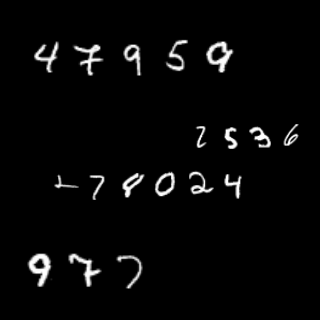 4 7 9 5 9
2 5 3 6
7 8 0 2 4
9 7 7